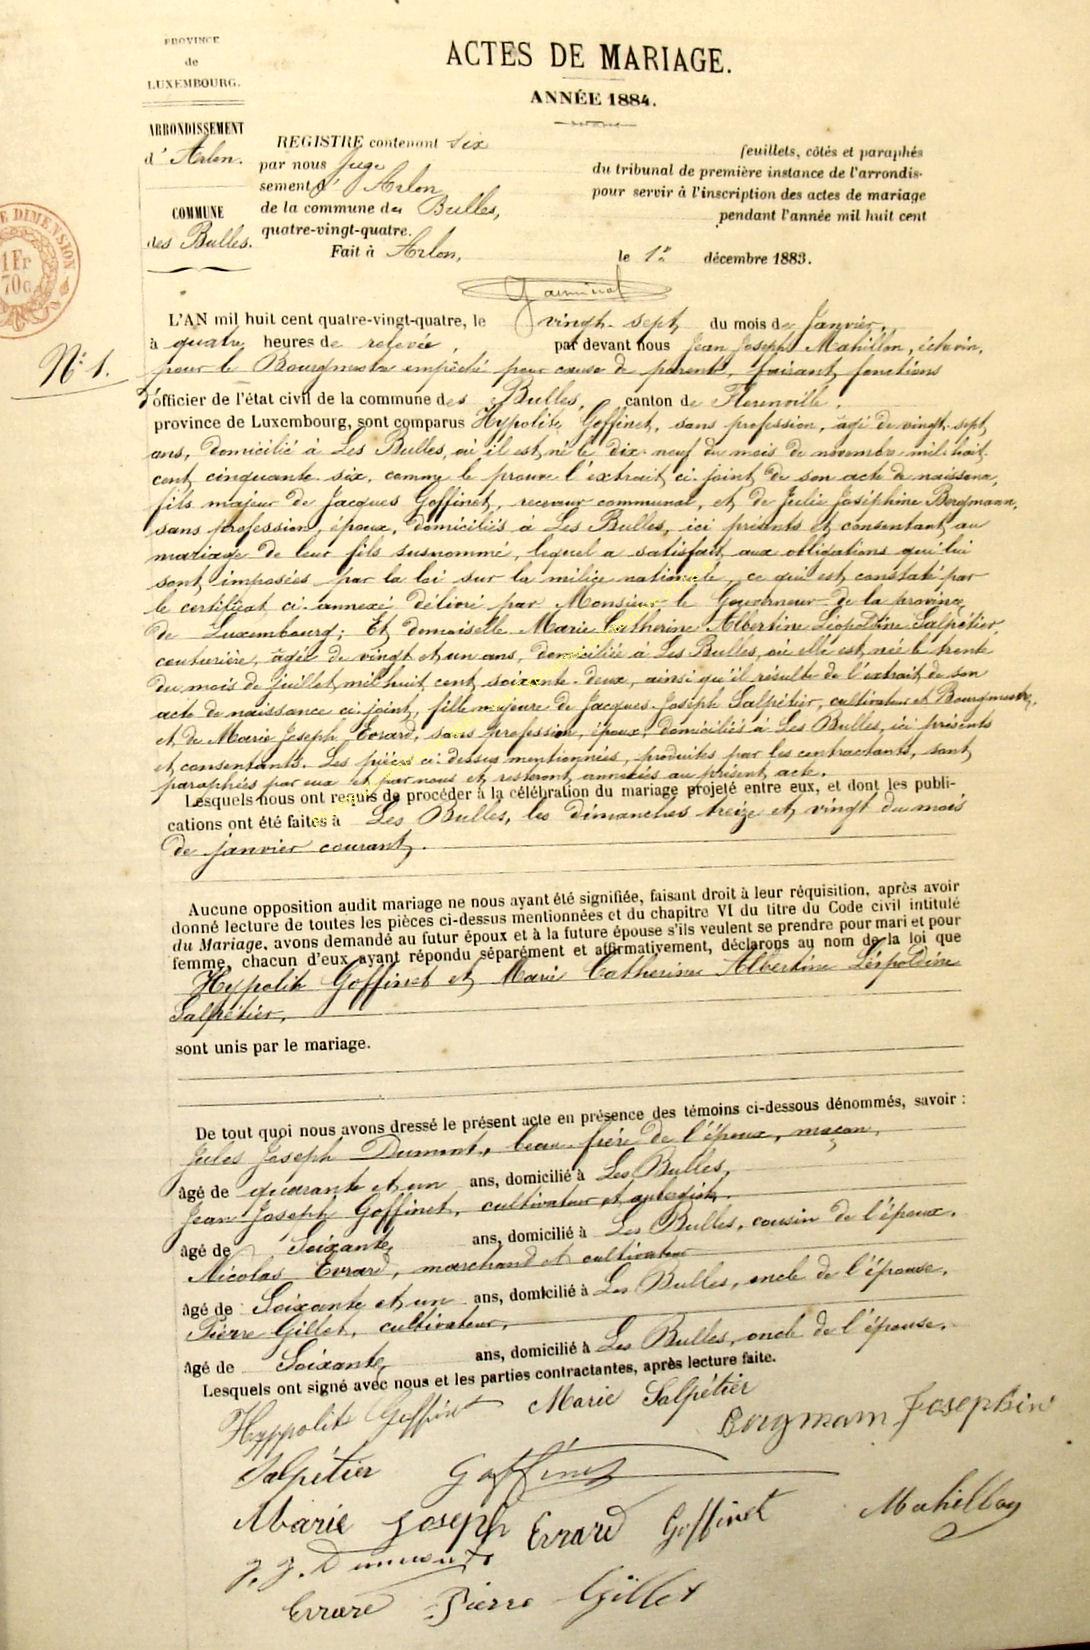 PROVINCE
de
LUXEMBOURG.
ARRONDISSEMENT
d'Arlon.
COMMUNE
des Bulles.
E DIMENSION
1Fr
70c
ACTES DE MARIAGE.
ANNÉE 1884.
REGISTRE contenant six feuillets, côtés et paraphés
par nous Juge du tribunal de première instance de l'arrondis-
sement d'Arlon pour servir à l'inscription des actes de mariage
de la commune des Bulles, pendant l'année mil huit cent
quatre-vingt-quatre.
Fait à Arlon, le 1er décembre 1883.
N° 1.
L'AN mil huit cent quatre-vingt-quatre, le vingt-sept du mois de Janvier,
à quatre heures de relevée, par devant nous Jean Joseph Mahillon, échevin,
pour le Bourgmestre empêché pour cause de parenté, faisant fonctions
d'officier de l'état civil de la commune des Bulles, canton de Florenville,
province de Luxembourg, sont comparus Hypolite Goffinet, sans profession, âgé de vingt-sept
ans, domicilié à Les Bulles, où il est né le dix-neuf du mois de novembre mil huit
cent cinquante-six, comme le prouve l'extrait ci-joint de son acte de naissance,
fils majeur de Jacques Goffinet, receveur communal, et de Julie Joséphine Bergmann,
sans profession, époux, domiciliés à Les Bulles, ici présents et consentant au
mariage de leur fils susnommé, lequel a satisfait aux obligations qui lui
sont imposées par la loi sur la milice nationale, ce qui est constaté par
le certificat ci-annexé délivré par Monsieur le Gouverneur de la province
de Luxembourg; Et demoiselle Marie Catherine Albertine Léopoldine Salpétier,
couturière, âgée de vingt et un ans, domiciliée à Les Bulles, où elle est née le trente
du mois de Juillet mil huit cent soixante-deux, ainsi qu'il résulte de l'extrait de son
acte de naissance ci-joint, fille majeure de Jacques-Joseph Salpétier, cultivateur et Bourgmestre,
et de Marie Joseph Evrard, sans profession, époux, domiciliés à Les Bulles, ici présents
et consentants. Les pièces ci-dessus mentionnées, produites par les contractants, sont
paraphées par eux et par nous et resteront annexées au présent acte.
Lesquels nous ont requis de procéder à la célébration du mariage projeté entre eux, et dont les publi-
cations ont été faites à Les Bulles, les dimanches treize et vingt du mois
de janvier courant.
Aucune opposition audit mariage ne nous ayant été signifiée, faisant droit à leur réquisition, après avoir
donné lecture de toutes les pièces ci-dessus mentionnées et du chapitre VI du titre du Code civil intitulé
du Mariage, avons demandé au futur époux et à la future épouse s'ils veulent se prendre pour mari et pour
femme, chacun d'eux ayant répondu séparément et affirmativement, déclarons au nom de la loi que
Hypolite Goffinet et Marie Catherine Albertine Léopoldine
Salpétier,
sont unis par le mariage.
De tout quoi nous avons dressé le présent acte en présence des témoins ci-dessous dénommés, savoir :
Jules Joseph Dumont, beau-frère de l'époux, maçon,
âgé de quarante et un ans, domicilié à Les Bulles,
Jean Joseph Goffinet, cultivateur et
âgé de Soixante ans, domicilié à Les Bulles, cousin de l'époux.
Nicolas Evrard, marchand et cultivateur
âgé de Soixante et un ans, domicilié à Les Bulles, oncle de l'épouse,
Pierre Gillet, cultivateur,
âgé de Soixante ans, domicilié à Les Bulles, oncle de l'épouse.
Lesquels ont signé avec nous et les parties contractantes, après lecture faite.
Hyppolite Goffinet Marie Salpétier Bergmann Josephine
Salpétier Goffinet
Marie Joseph Evrard Goffinet Mahillon
J. J. Dumont
Evrard Pierre Gillet